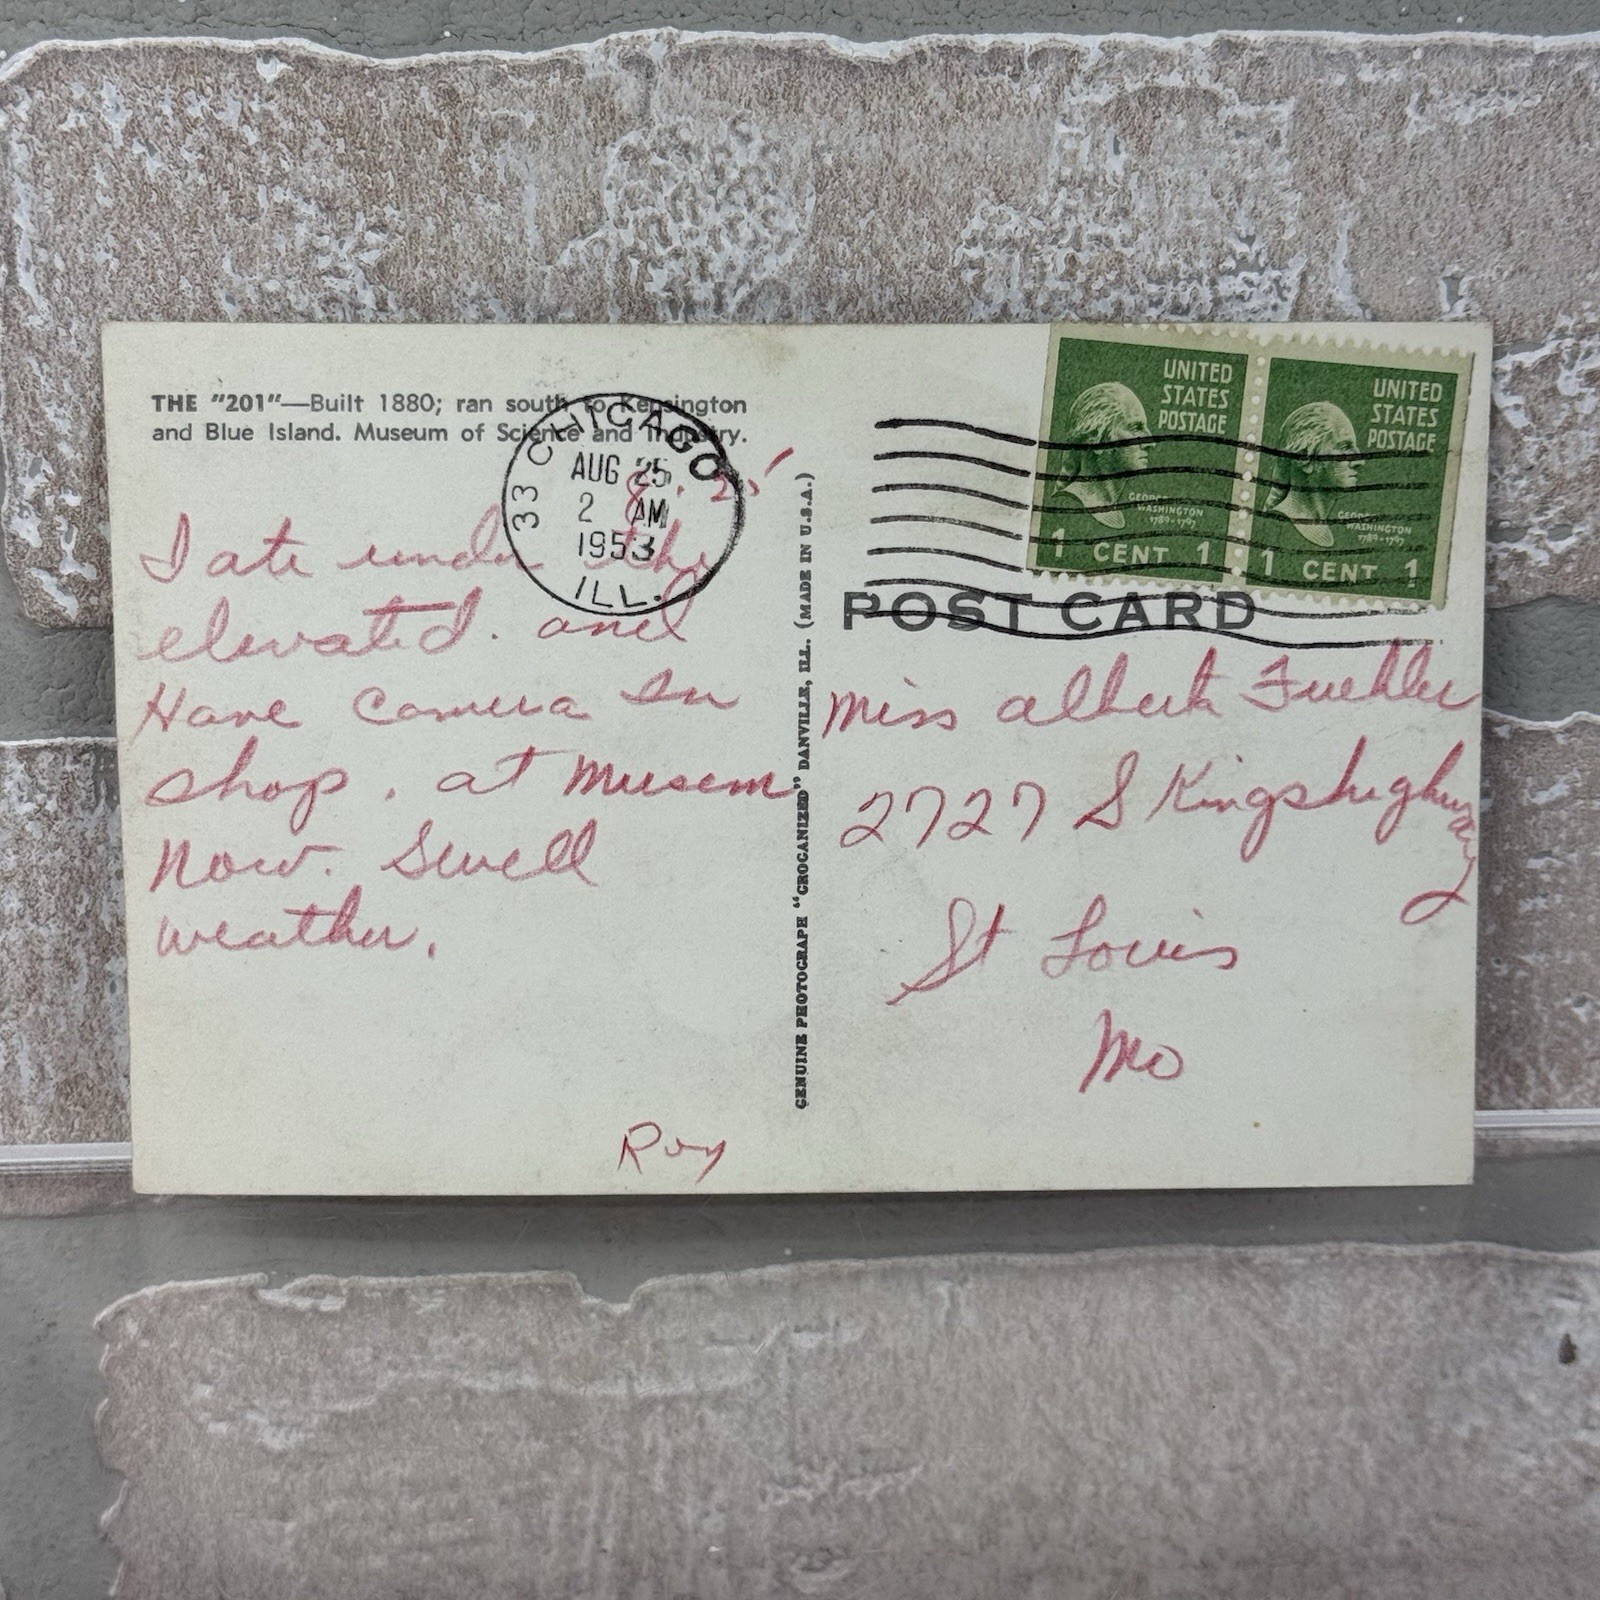 THE "201"—Built 1880; ran south to Kensington
and Blue Island. Museum of Science and Industry.
33 CHICAGO
AUG 25
2 AM
1953
ILL.
I ate under the
elevated. and
Have Camera In
shop. at Musem
Now. Swell
weather.
Roy
GENUINE PHOTOGRAPH "CROCANIZED" DANVILLE, ILL. (MADE IN U.S.A.)
UNITED
STATES
POSTAGE
GEORGE
WASHINGTON
1789-1797
1 CENT 1
UNITED
STATES
POSTAGE
GEORGE
WASHINGTON
1789-1797
1 CENT 1
POST CARD
Miss Alberta Fuehler
2727 S Kingshighway
St Louis
Mo